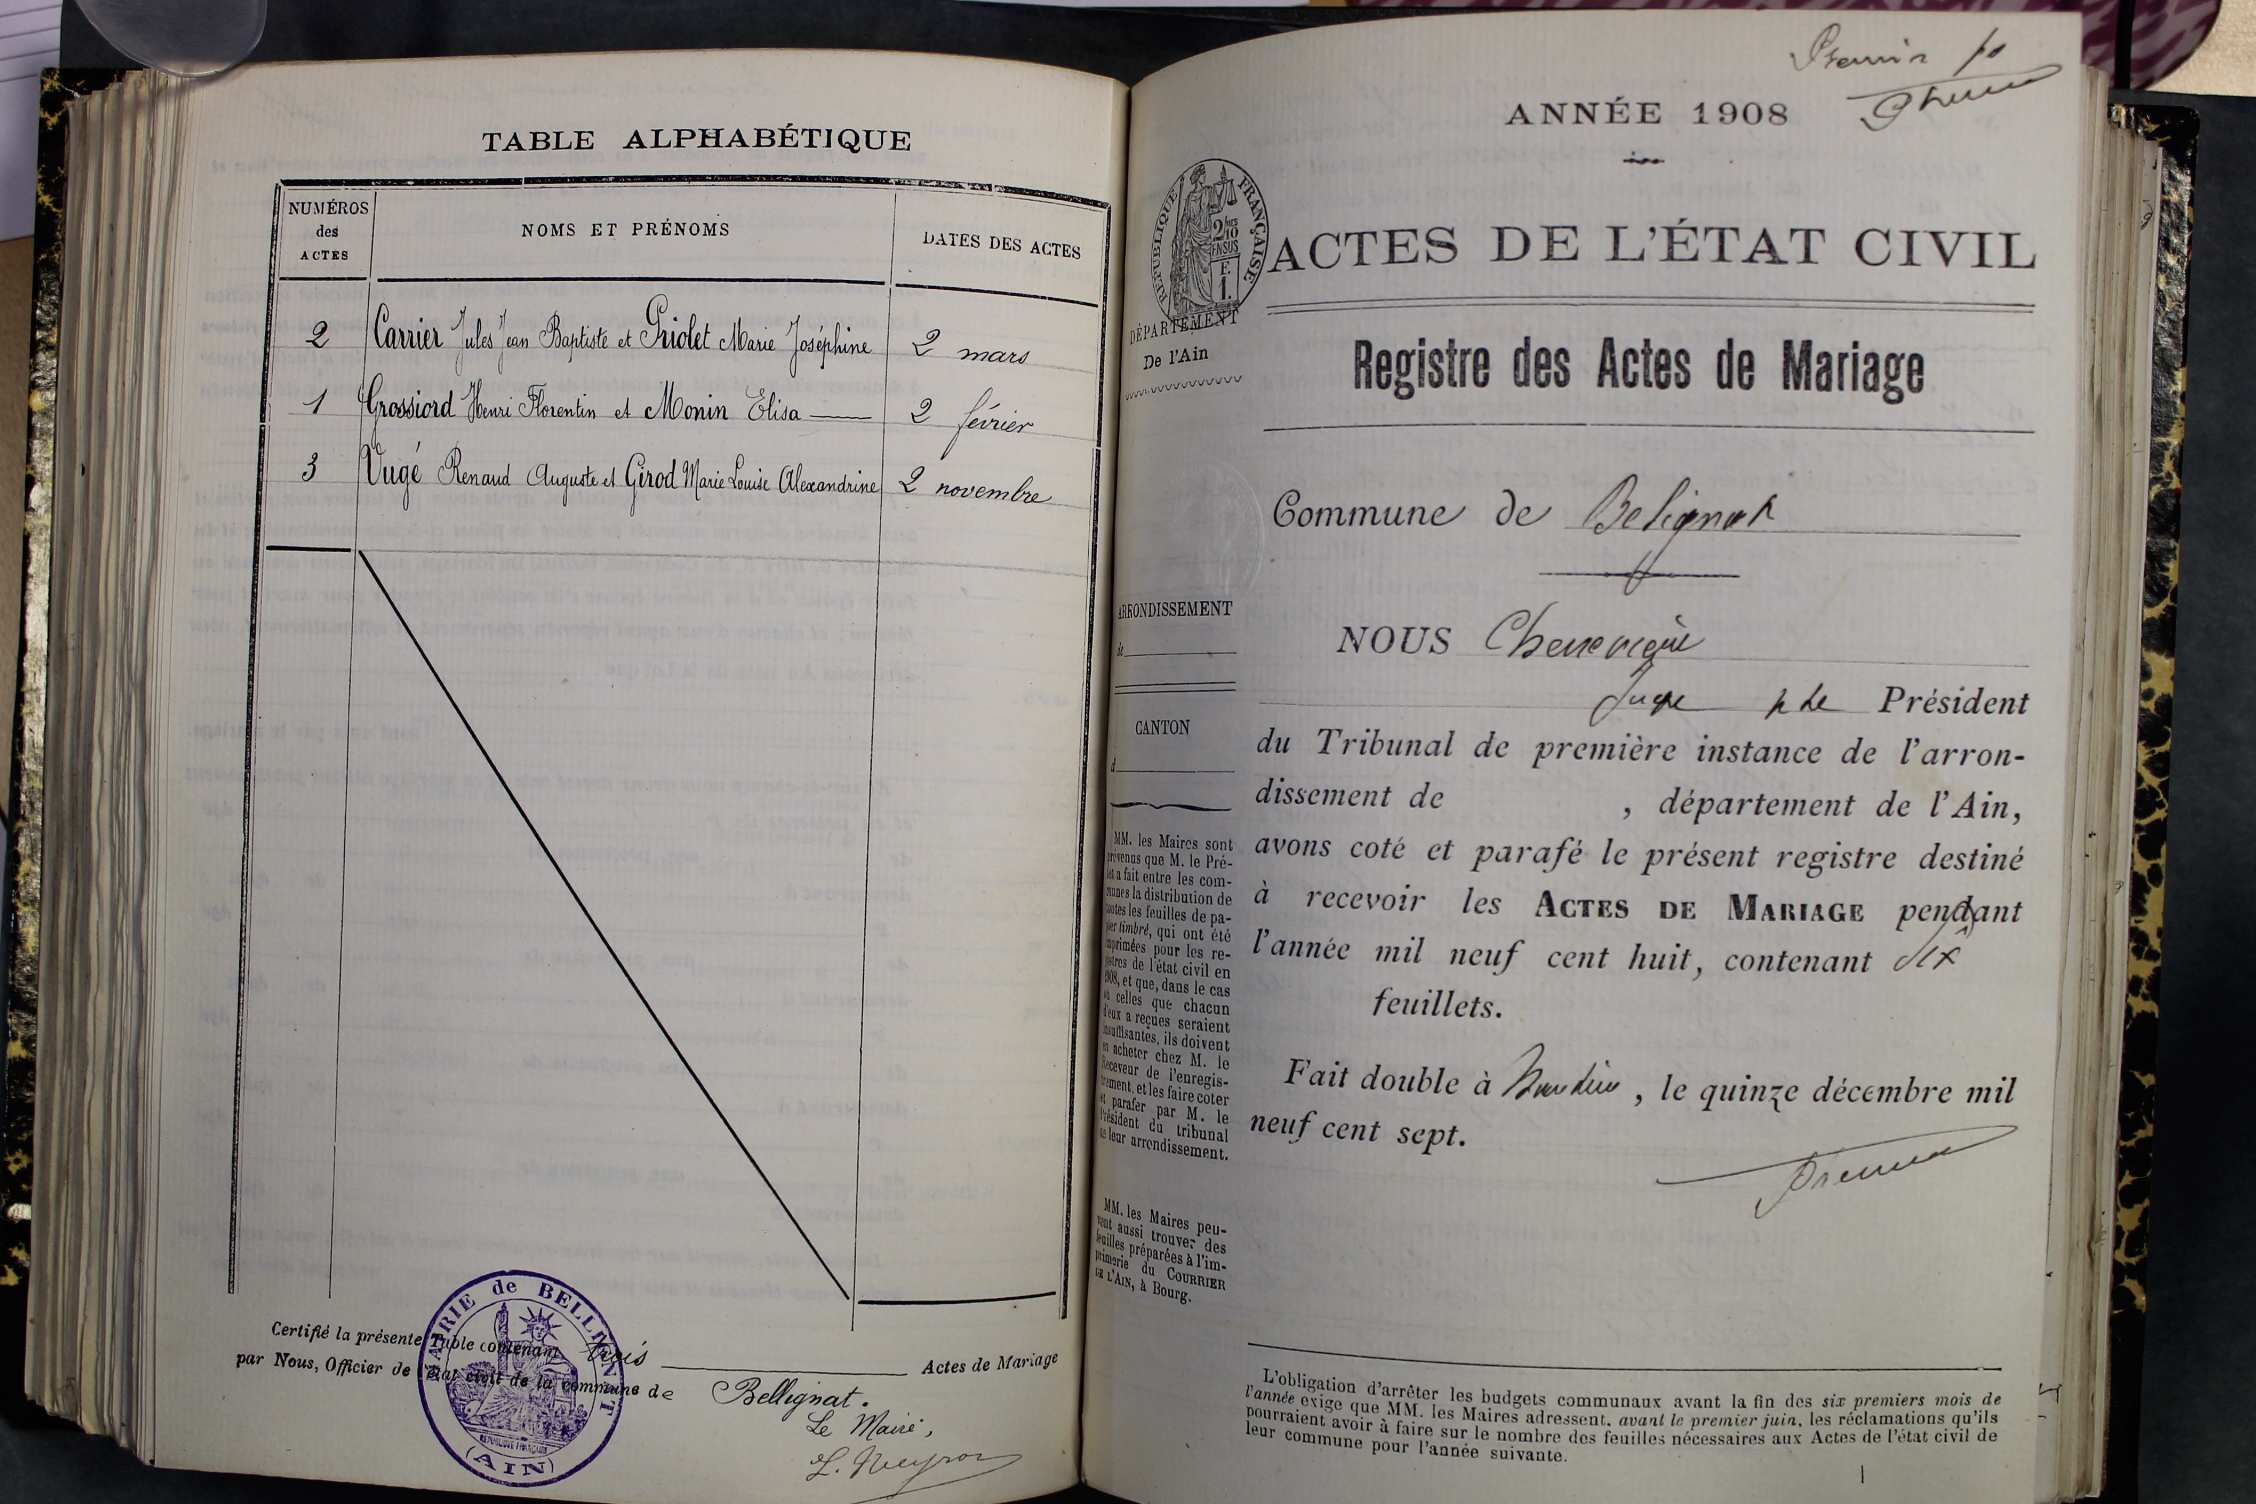 TABLE ALPHABÉTIQUE
NUMÉROS des ACTES
NOMS ET PRÉNOMS
DATES DES ACTES
2 Carrier Jules Jean Baptiste et Priolet Marie Joséphine 2 mars
1 Grossiord Henri Florentin et Monin Elisa 2 février
3 Vugé Renaud Auguste et Girod Marie Louise Alexandrine 2 novembre
Certifié la présente Table contenant trois Actes de Mariage
par Nous, Officier de l'état civil de la commune de Bellignat.
Le Maire,
MAIRIE de BELLIGNAT
RÉPUBLIQUE FRANÇAISE
(AIN)
Premier
ANNÉE 1908
RÉPUBLIQUE FRANÇAISE
ACTES DE L'ÉTAT CIVIL
DÉPARTEMENT
De l'Ain
Registre des Actes de Mariage
Commune de Belignat
ARRONDISSEMENT
de
CANTON
d
NOUS
Juge Président
du Tribunal de première instance de l'arron-
dissement de , département de l'Ain,
avons coté et parafé le présent registre destiné
à recevoir les ACTES DE MARIAGE pendant
l'année mil neuf cent huit, contenant
feuillets.
Fait double à , le quinze décembre mil
neuf cent sept.
MM. les Maires sont
prévenus que M. le Pré-
fet a fait entre les com-
munes la distribution de
toutes les feuilles de pa-
pier timbré, qui ont été
imprimées pour les re-
gistres de l'état civil en
1908, et que, dans le cas
où celles que chacun
d'eux a reçues seraient
insuffisantes, ils doivent
en acheter chez M. le
Receveur de l'enregis-
trement, et les faire coter
et parafer par M. le
Président du tribunal
de leur arrondissement.
MM. les Maires peu-
vent aussi trouver des
feuilles préparées à l'im-
primerie du COURRIER
DE L'AIN, à Bourg.
L'obligation d'arrêter les budgets communaux avant la fin des six premiers mois de
l'année exige que MM. les Maires adressent, avant le premier juin, les réclamations qu'ils
pourraient avoir à faire sur le nombre des feuilles nécessaires aux Actes de l'état civil de
leur commune pour l'année suivante.
1